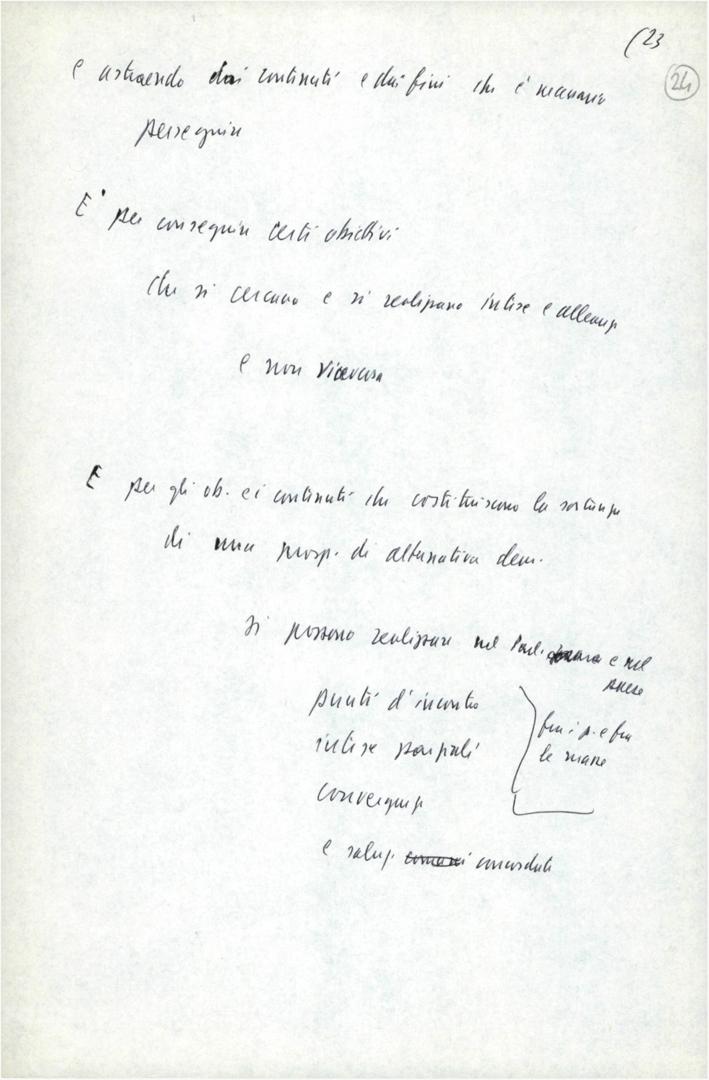 (23
24
e astraendo dai contenuti e dai fini che è necessario
perseguire
E' per conseguire certi obiettivi
che si cercano e si realizzano intese e alleanze
e non viceversa
E per gli ob. e i contenuti che costituiscono la sostanza
di una prosp. di alternativa dem.
si possono realizzare nel Parl. e nel
paese
punti d'incontro
intese parziali
convergenze
fra i p. e fra
le masse
e soluz. concordate